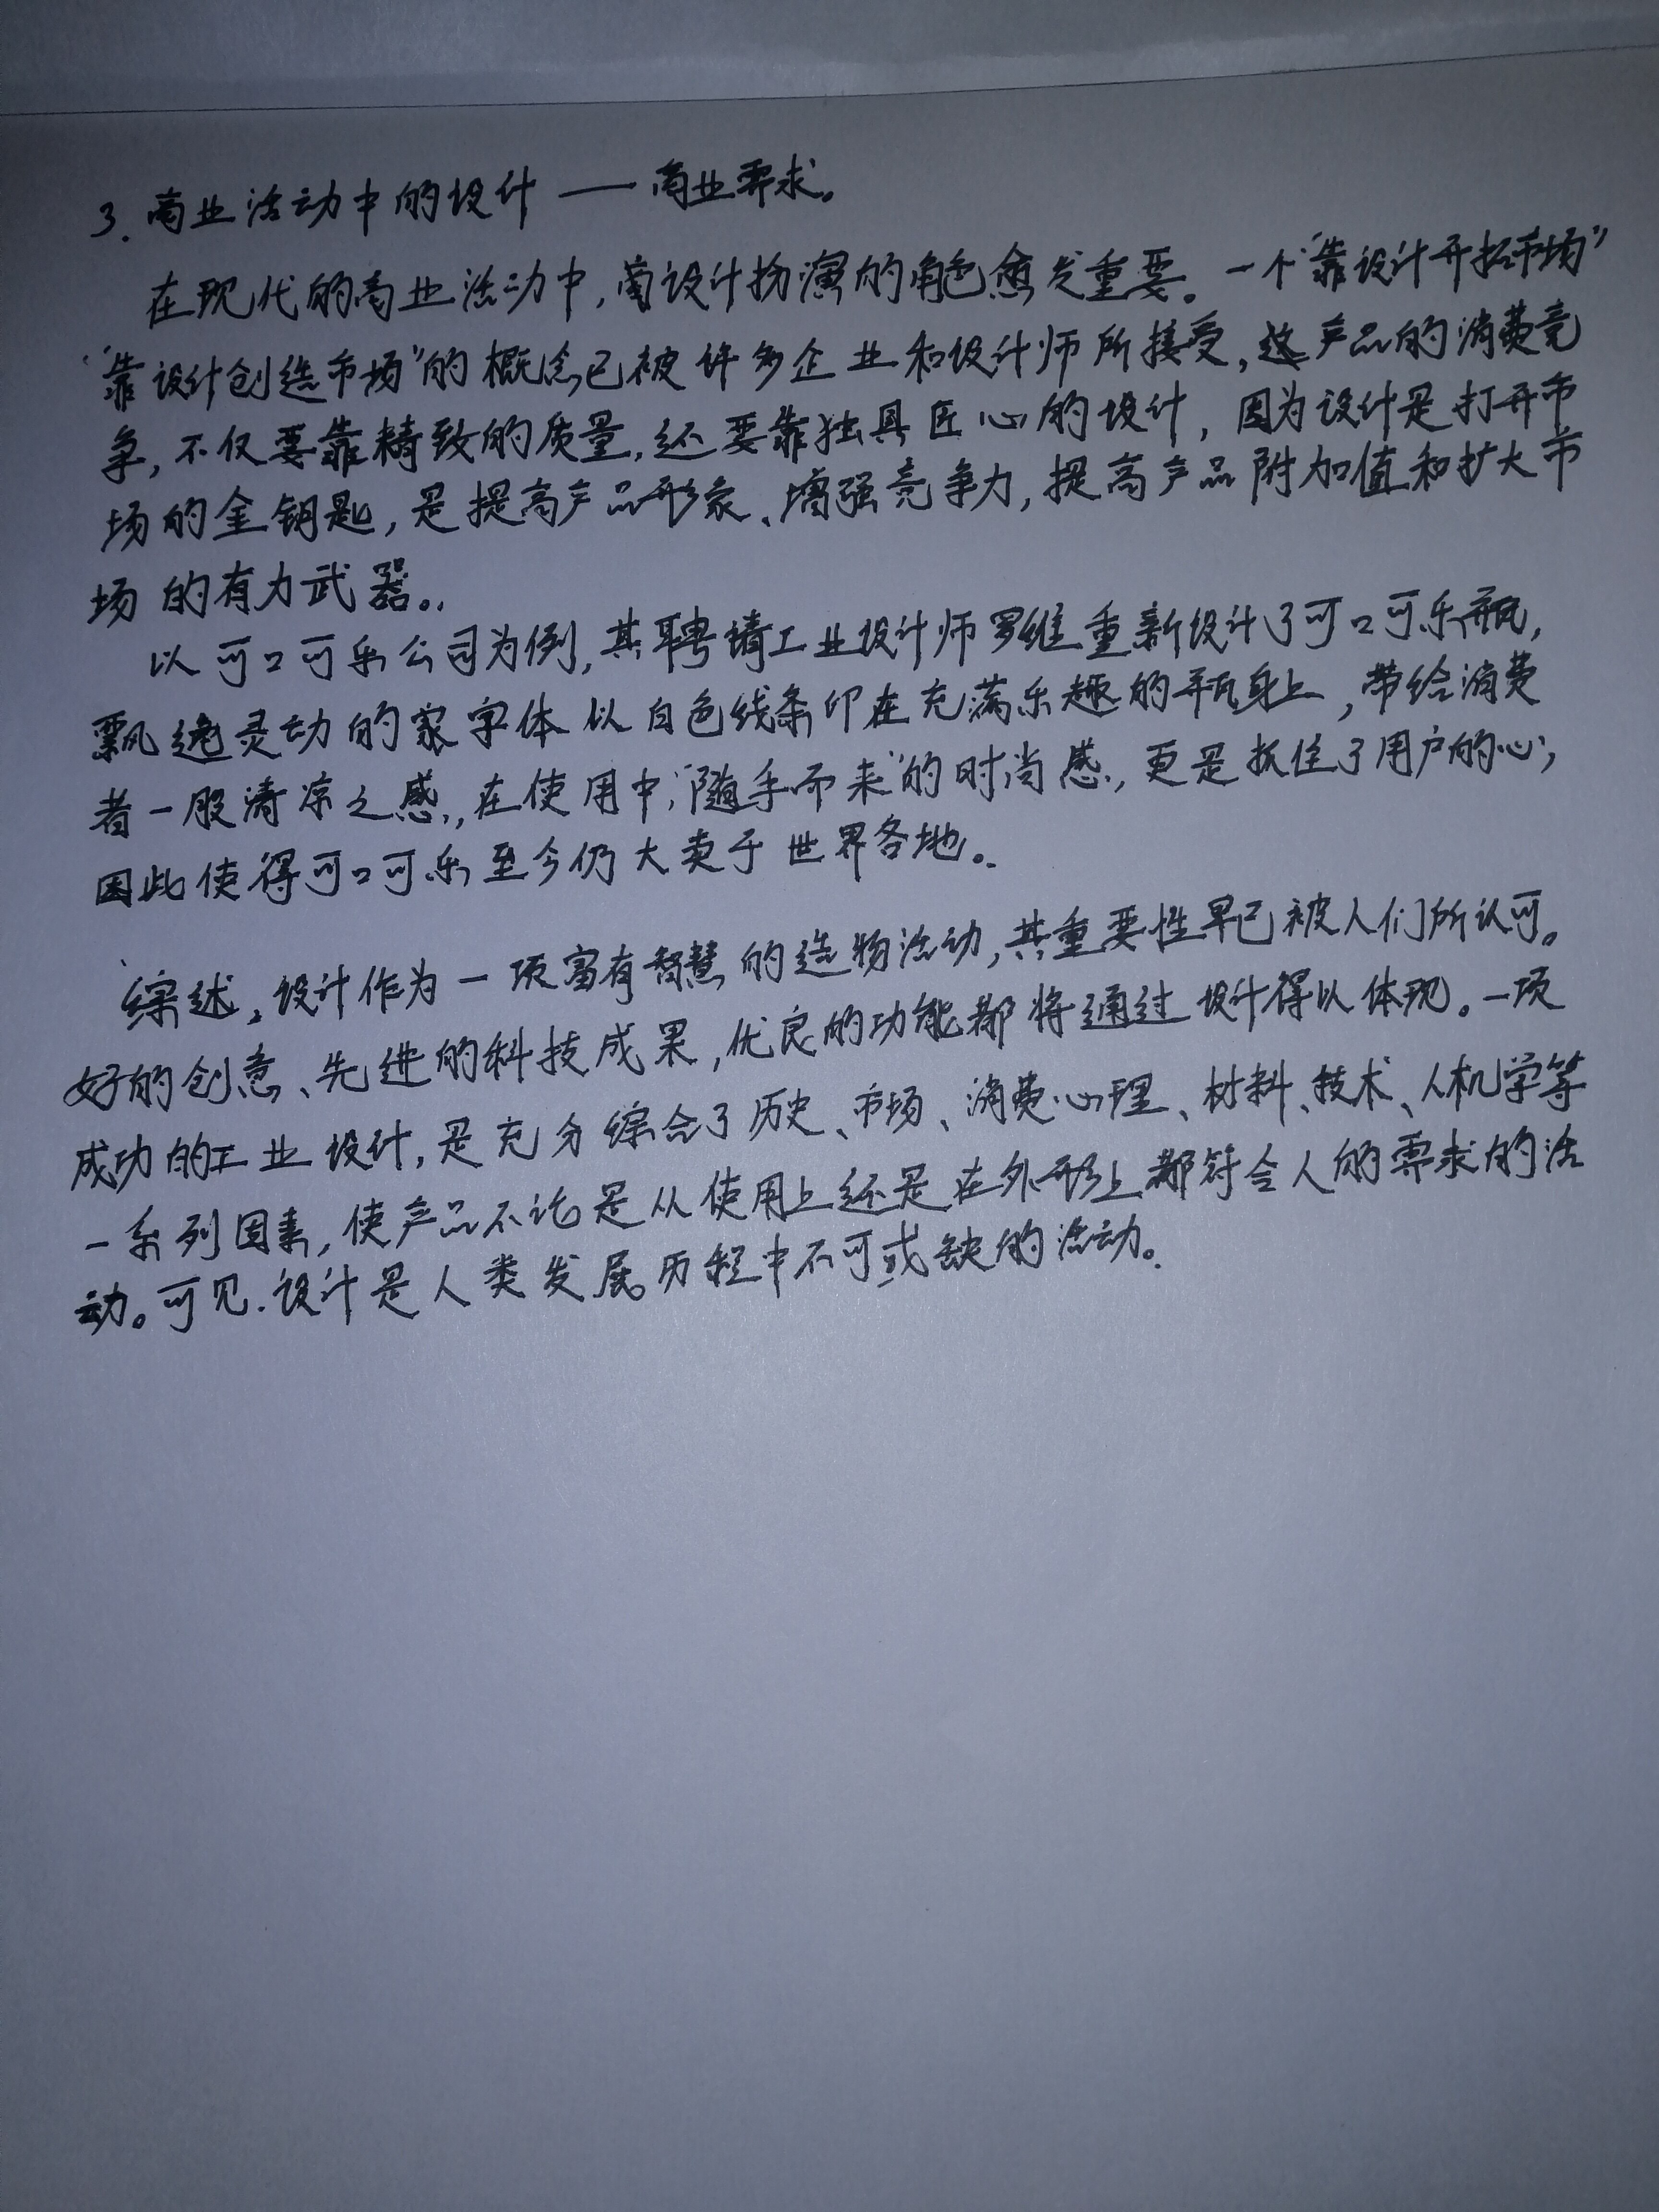 3. 商业活动中的设计——商业需求。
在现代的商业活动中,商设计扮演的角色愈发重要。一个“靠设计开拓市场”
“靠设计创造市场”的概念已被许多企业和设计师所接受,这产品的消费竞
争,不仅要靠精致的质量,还要靠独具匠心的设计,因为设计是打开市
场的金钥匙,是提高产品形象、增强竞争力,提高产品附加值和扩大市
场的有力武器。
以可口可乐公司为例,其聘请工业设计师罗维重新设计了可口可乐瓶,
飘逸灵动的家字体以白色线条印在充满乐趣的瓶身上,带给消费
者一股清凉之感,在使用中,“随手而来”的时尚感,更是抓住了用户的心,
因此使得可口可乐至今仍大卖于世界各地。
综述,设计作为一项富有智慧的造物活动,其重要性早已被人们所认可。
好的创意、先进的科技成果,优良的功能都将通过设计得以体现。一项
成功的工业设计,是充分综合了历史、市场、消费心理、材料、技术、人机学等
一系列因素,使产品不论是从使用上还是在外形上都符合人的需求的活
动。可见.设计是人类发展历程中不可或缺的活动。